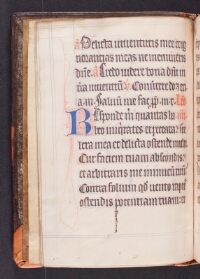 Delicta iuventutis mee et ig
norantias meas ne memineris
dñe. Credo videre bona dñi in
t̃ra viventiũ. Converte dñe
a. m. Salvũ me fac ꝓp̃ m.
Responde m̃ quantas ha
beo iniq̃tates et peccata sce
lera mea et delicta ostende michi
Cur faciem tuam abscondis
et arbitraris me inimicũ tuũ
Contra folium qd̃ vento rapit̃
ostendis potentiam tuam et